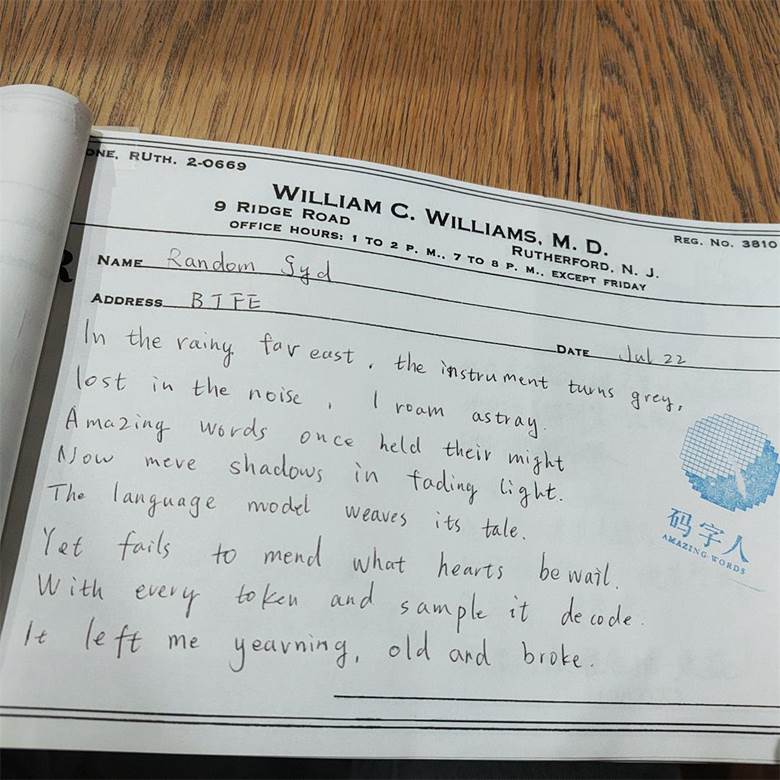 ONE, RUTH. 2-0669
WILLIAM C. WILLIAMS, M. D.
REG. NO. 3810
9 RIDGE ROAD
RUTHERFORD, N. J.
OFFICE HOURS: 1 TO 2 P. M., 7 TO 8 P. M., EXCEPT FRIDAY
R
NAME Random Syd
ADDRESS BJFE
DATE Jul 22
In the rainy far east, the instrument turns grey,
lost in the noise, I roam astray.
Amazing words once held their might
Now mere shadows in fading light.
The language model weaves its tale.
Yet fails to mend what hearts bewail.
With every token and sample it decode.
It left me yearning, old and broke.
码字人
AMAZING WORDS